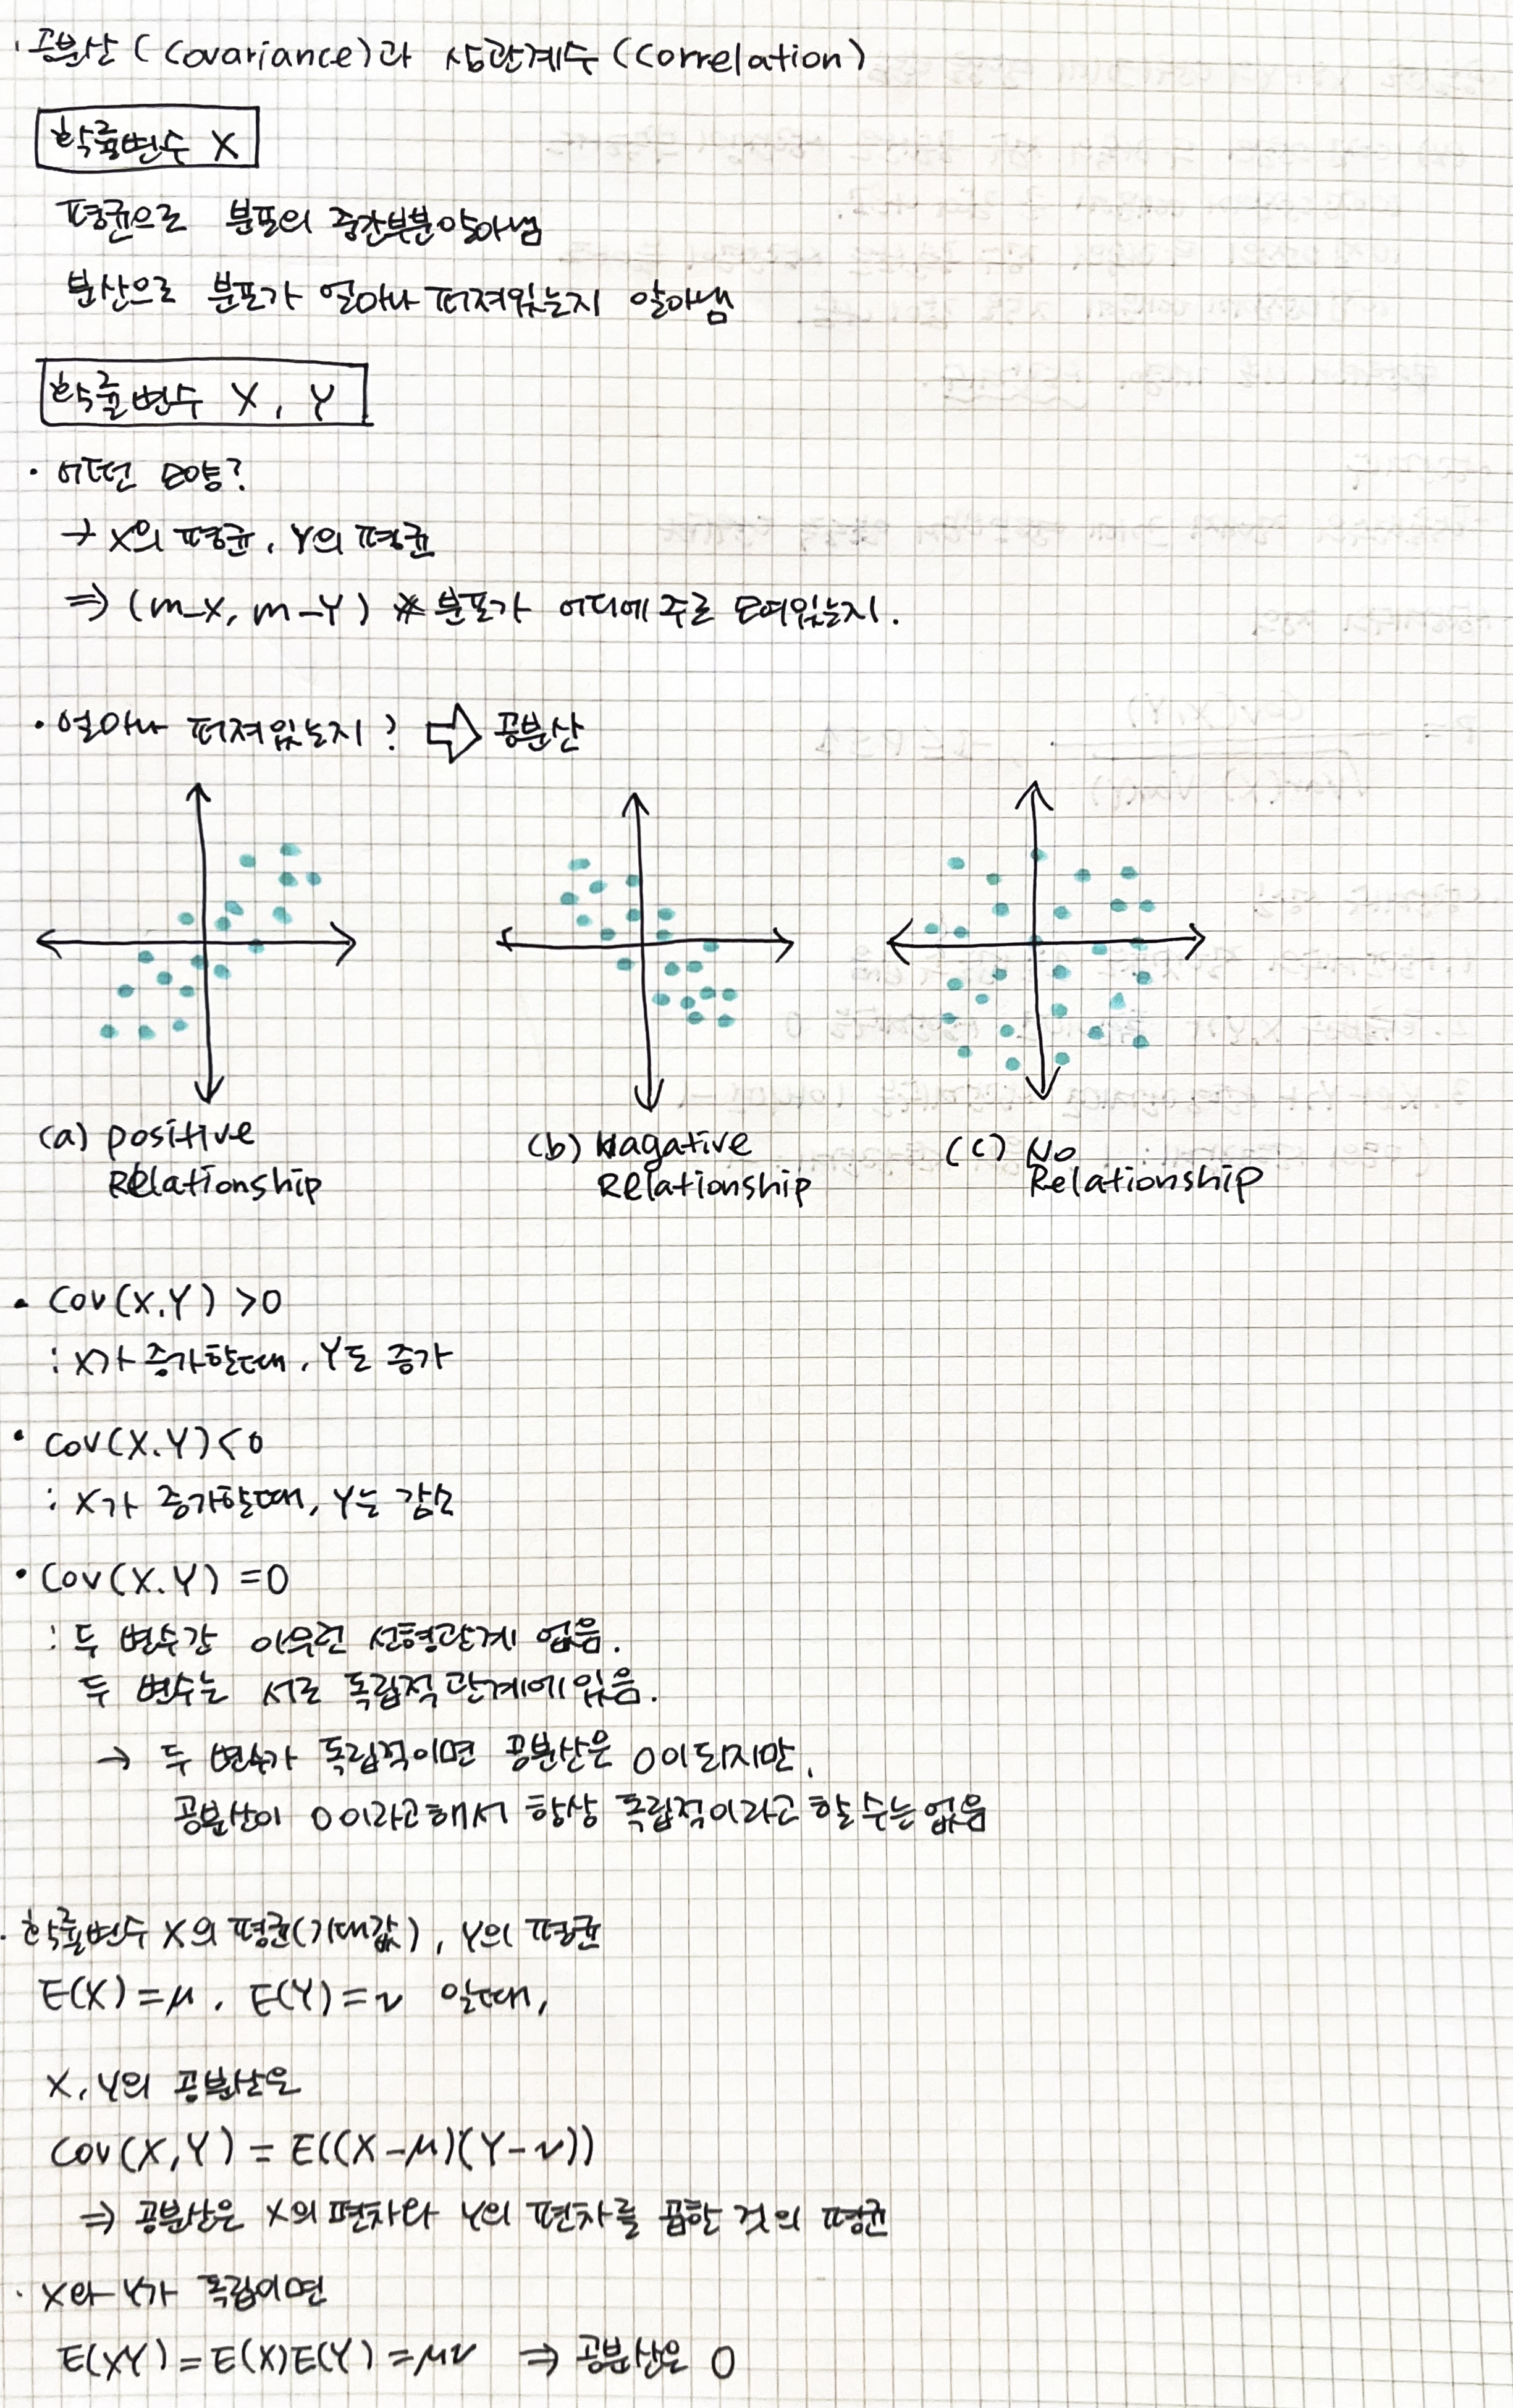 · 공분산 (Covariance)과 상관계수 (Correlation)
확률변수 X
평균으로 분포의 중간부분 알아냄
분산으로 분포가 얼마나 퍼져있는지 알아냄
확률변수 X, Y
· 어떤 모양?
→ X의 평균, Y의 평균
⇒ (m_X, m_Y) ※ 분포가 어디에 주로 모여있는지.
· 얼마나 퍼져있는지? ⇨ 공분산
(a) positive
Relationship
(b) Nagative
Relationship
(c) No
Relationship
· Cov(X.Y) >0
: X가 증가할때, Y도 증가
· Cov(X.Y)<0
: X가 증가할때, Y는 감소
· Cov(X.Y) =0
: 두 변수간 아무런 선형관계 없음.
두 변수는 서로 독립적 관계에 있음.
→ 두 변수가 독립적이면 공분산은 0이 되지만,
공분산이 0이라고 해서 항상 독립적이라고 할 수는 없음
· 확률변수 X의 평균(기대값), Y의 평균
E(X)=μ, E(Y)=ν 일때,
X, Y의 공분산은
Cov(X,Y) = E((X-μ)(Y-ν))
⇒ 공분산은 X의 편차와 Y의 편차를 곱한 것의 평균
· X와 Y가 독립이면
E(XY)=E(X)E(Y)=μν ⇒ 공분산은 0